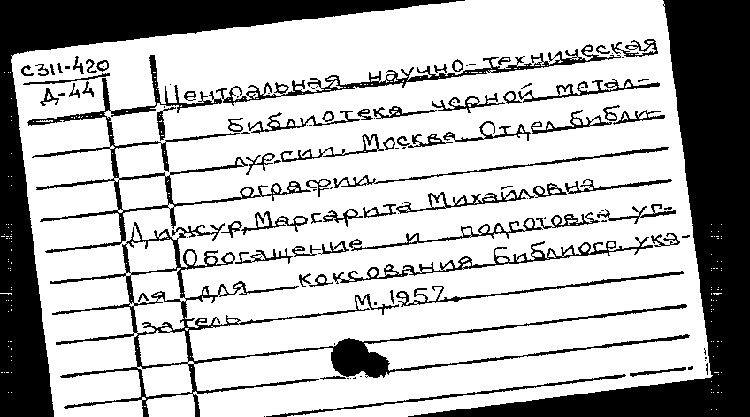 С311-420
Д-44
Центральная научно-техническая
библиотека черной метал-
лургии. Москва. Отдел библи-
ографии.
Дижур, Маргарита Михайловна.
Обогащение и подготовка уг-
ля для коксования. Библиогр. ука-
затель. М., 1957.